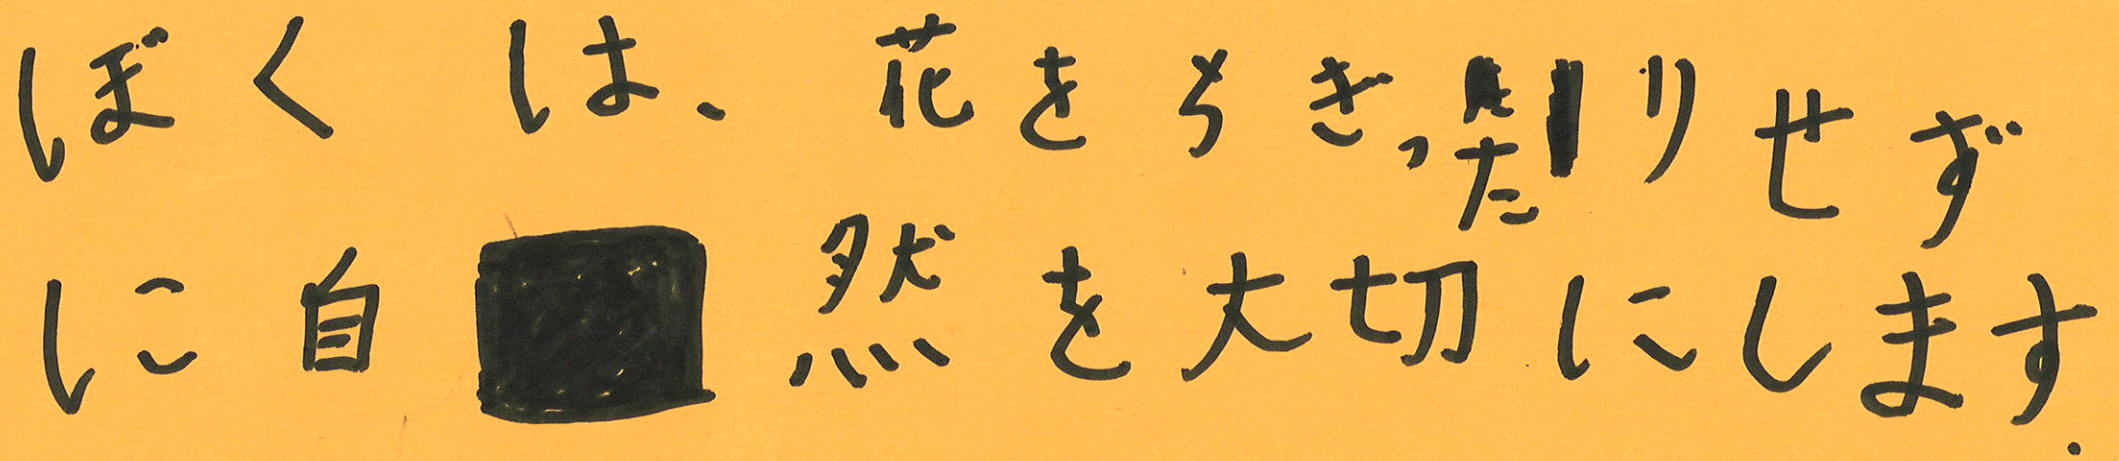 ぼくは、花をちぎったりせず
に自然を大切にします.